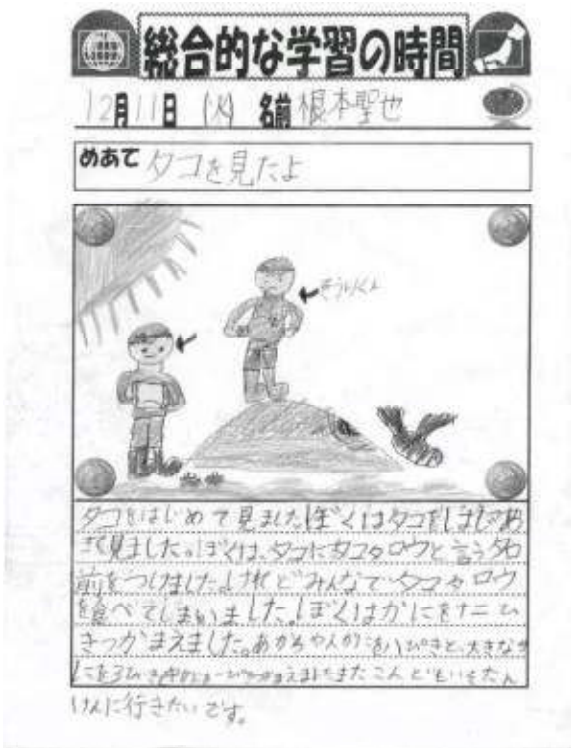 総合的な学習の時間
12月11日(火) 名前 根本聖也
めあて タコを見たよ
タコをはじめて見ました。ぼくはタコをはじめ
て見ました。ぼくは、タコにタコタロウと言う名
前をつけました。けれどみんなでタコタロウ
を食べてしまいました。ぼくはかにを十二ひ
きつかまえました。あかちゃんがにを八ぴきと、大きなか
にを3び つかまえましたまたこんどもいそたん
けんに行きたいです。